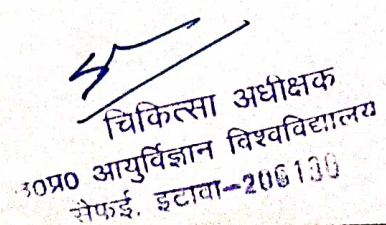 चिकित्सा अधीक्षक
उ0प्र0 आयुर्विज्ञान विश्वविद्यालय
सैफई, इटावा-206130